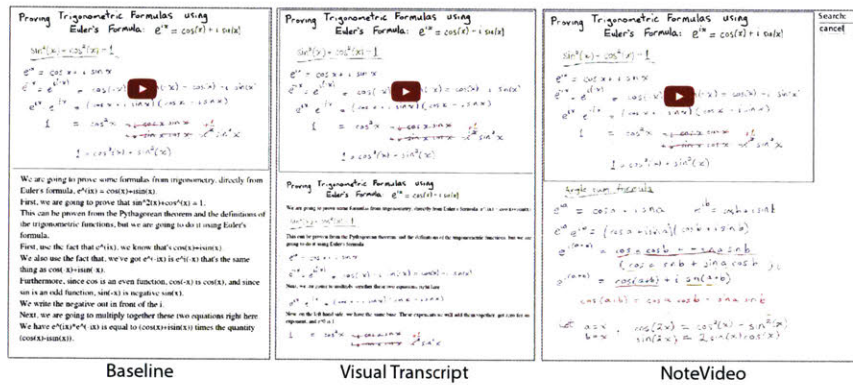 Proving Trigonometric Formulas using
Euler's Formula: e^ix = cos(x) + i sin(x)
sin²(x) + cos²(x) = 1
e^ix = cos x + i sin x
e^-ix = e^i(-x) = cos(-x) + i sin(-x) = cos(x) - i sin(x)
e^ix e^-ix = (cos x + i sin x)(cos x - i sin x)
1 = cos²x - i cos x sin x
+ i sin x cos x - i² sin²x
1 = cos²(x) + sin²(x)
We are going to prove some formulas from trigonometry, directly from
Euler's formula, e^(ix) = cos(x)+isin(x).
First, we are going to prove that sin^2(x)+cos^(x) = 1.
This can be proven from the Pythagorean theorem and the definitions of
the trigonometric functions, but we are going to do it using Euler's
formula.
First, use the fact that e^(ix), we know that's cos(x)+isin(x).
We also use the fact that, we've got e^(-ix) is e^i(-x) that's the same
thing as cos(-x)+isin(-x).
Furthermore, since cos is an even function, cos(-x) is cos(x), and since
sin is an odd function, sin(-x) is negative sin(x).
We write the negative out in front of the i.
Next, we are going to multiply together these two equations right here.
We have e^(ix)*e^(-ix) is equal to (cos(x)+isin(x)) times the quantity
(cos(x)-isin(x)).
Baseline
Proving Trigonometric Formulas using
Euler's Formula: e^ix = cos(x) + i sin(x)
sin²(x) + cos²(x) = 1
e^ix = cos x + i sin x
e^ix e^-ix = (cos x + i sin x)(cos x - i sin x)
1 = cos²(x) + sin²(x)
Proving Trigonometric Formulas using
Euler's Formula: e^ix = cos(x) + i sin(x)
We are going to prove some formulas from trigonometry, directly from Euler's formula
This can be proven from the Pythagorean theorem and the definitions of the trigonometric functions, but we are
going to do it using Euler's formula.
Next, we are going to multiply these two equations right here.
Visual Transcript
Proving Trigonometric Formulas using
Euler's Formula: e^ix = cos(x) + i sin(x)
Search:
cancel
sin²(x) + cos²(x) = 1
e^ix = cos x + i sin x
e^ix e^-ix = (cos x + i sin x)(cos x - i sin x)
1 = cos²(x) + sin²(x)
Angle sum formula
e^ia = cos a + i sin a e^ib = cos b + i sin b
e^ia e^ib = (cos a + i sin a)(cos b + i sin b)
e^i(a+b) = cos a cos b - sin a sin b
e^i(a+b) = cos(a+b) + i sin(a+b)
cos(a+b) = cos a cos b - sin a sin b
Let a=x cos(2x) = cos²(x) - sin²(x)
b=x sin(2x) = 2 sin(x) cos(x)
NoteVideo